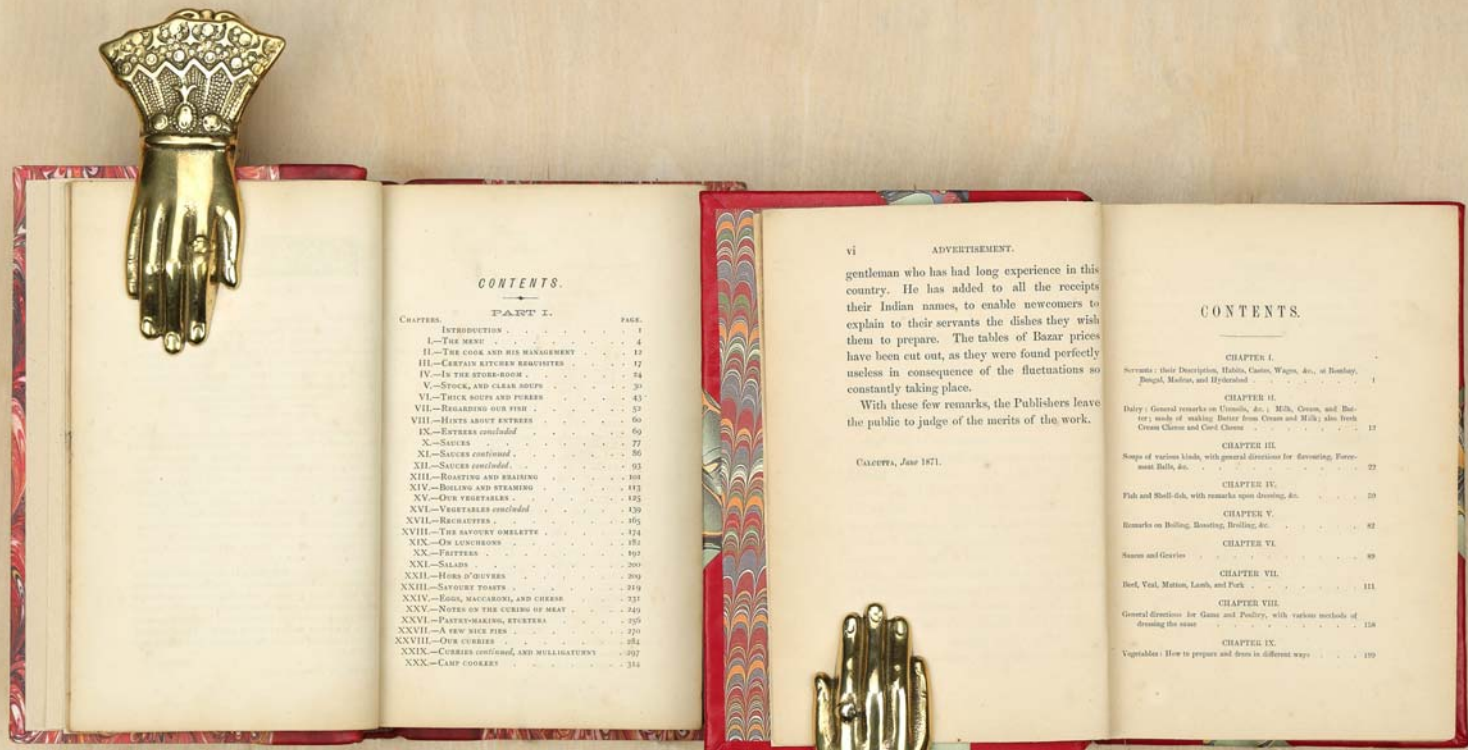 CONTENTS.
PART I.
CHAPTERS. PAGE.
INTRODUCTION . . . . . . . 1
I.—THE MENU . . . . . . . 4
II.—THE COOK AND HIS MANAGEMENT . . . . 12
III.—CERTAIN KITCHEN REQUISITES . . . . 17
IV.—IN THE STORE-ROOM . . . . . . 24
V.—STOCK, AND CLEAR SOUPS . . . . . 30
VI.—THICK SOUPS AND PUREES . . . . . 43
VII.—REGARDING OUR FISH . . . . . . 52
VIII.—HINTS ABOUT ENTREES . . . . . 60
IX.—ENTREES concluded . . . . . . 69
X.—SAUCES . . . . . . . 77
XI.—SAUCES continued . . . . . . 86
XII.—SAUCES concluded . . . . . . 93
XIII.—ROASTING AND BRAISING . . . . . 101
XIV.—BOILING AND STEAMING . . . . . 113
XV.—OUR VEGETABLES . . . . . . 125
XVI.—VEGETABLES concluded . . . . . 139
XVII.—RECHAUFFES . . . . . . . 165
XVIII.—THE SAVOURY OMELETTE . . . . . 174
XIX.—ON LUNCHEONS . . . . . . 182
XX.—FRITTERS . . . . . . . 192
XXI.—SALADS . . . . . . . 200
XXII.—HORS D'ŒUVRES . . . . . . 209
XXIII.—SAVOURY TOASTS . . . . . . 219
XXIV.—EGGS, MACCARONI, AND CHEESE . . . . 231
XXV.—NOTES ON THE CURING OF MEAT . . . . 249
XXVI.—PASTRY-MAKING, ETCETERA . . . . 256
XXVII.—A FEW NICE PIES . . . . . . 270
XXVIII.—OUR CURRIES . . . . . . 284
XXIX.—CURRIES continued, AND MULLIGATUNNY . . 297
XXX.—CAMP COOKERY . . . . . . 314
vi ADVERTISEMENT.
gentleman who has had long experience in this
country. He has added to all the receipts
their Indian names, to enable newcomers to
explain to their servants the dishes they wish
them to prepare. The tables of Bazar prices
have been cut out, as they were found perfectly
useless in consequence of the fluctuations so
constantly taking place.
With these few remarks, the Publishers leave
the public to judge of the merits of the work.
CALCUTTA, June 1871.
CONTENTS.
CHAPTER I.
Servants: their Description, Habits, Castes, Wages, &c., at Bombay,
Bengal, Madras, and Hyderabad . . . . . . 1
CHAPTER II.
Dairy: General remarks on Utensils, &c.; Milk, Cream, and But-
ter; mode of making Butter from Cream and Milk; also fresh
Cream Cheese and Curd Cheese . . . . . . 12
CHAPTER III.
Soups of various kinds, with general directions for flavouring, Force-
meat Balls, &c. . . . . . . . 22
CHAPTER IV.
Fish and Shell-fish, with remarks upon dressing, &c. . . . 59
CHAPTER V.
Remarks on Boiling, Roasting, Broiling, &c. . . . . 82
CHAPTER VI.
Sauces and Gravies . . . . . . . 89
CHAPTER VII.
Beef, Veal, Mutton, Lamb, and Pork . . . . . 111
CHAPTER VIII.
General directions for Game and Poultry, with various methods of
dressing the same . . . . . . . 158
CHAPTER IX.
Vegetables: How to prepare and dress in different ways . . . 199